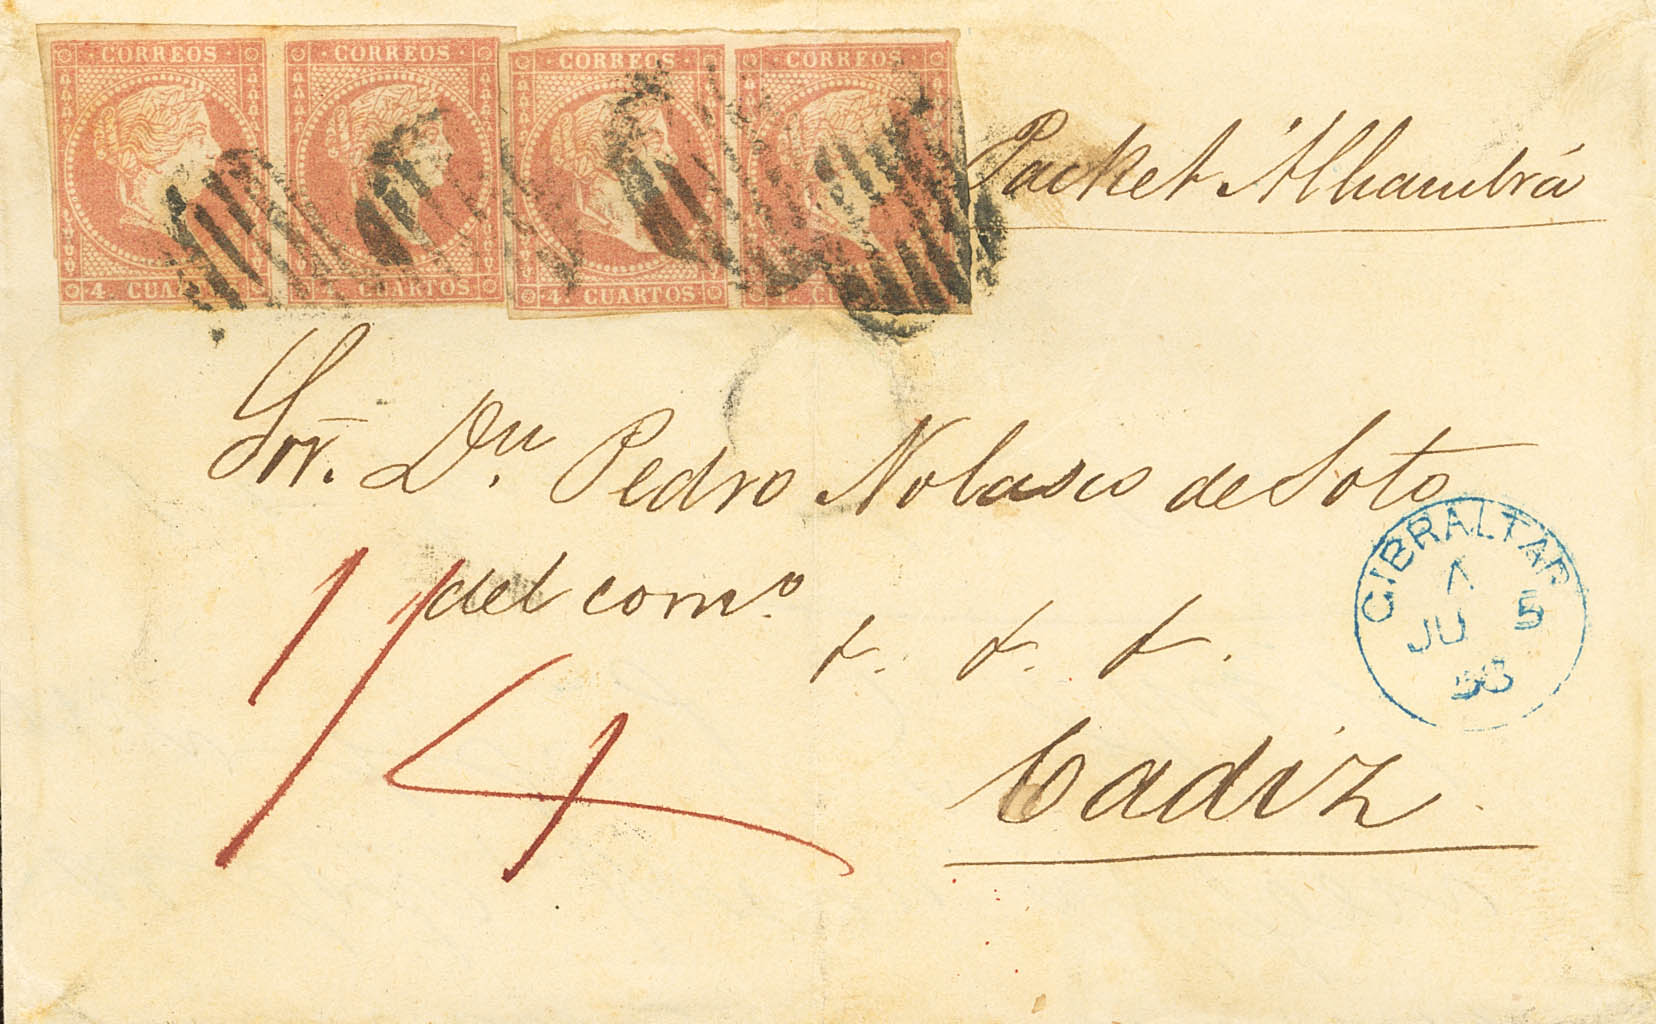 CORREOS CORREOS CORREOS CORREOS
4. CUARTOS 4. CUARTOS
Packet Alhambra
Sor. Dn. Pedro Nolasco de Soto
del como.
GIBRALTAR
A
JU 5
58
1/4
Cadiz